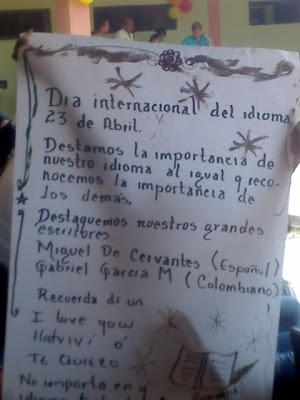 Dia internacional del idioma
23 de Abril.
Destamos la importancia de
nuestro idioma al igual q reco-
nocemos la importancia de
los demás.
Destaquemos nuestros grandes
escritores
Miguel De Cervantes (Español)
Gabriel Garcia M (Colombiano)
Recuerda di un
I love you
ó
TE QUIERO
No importa en q